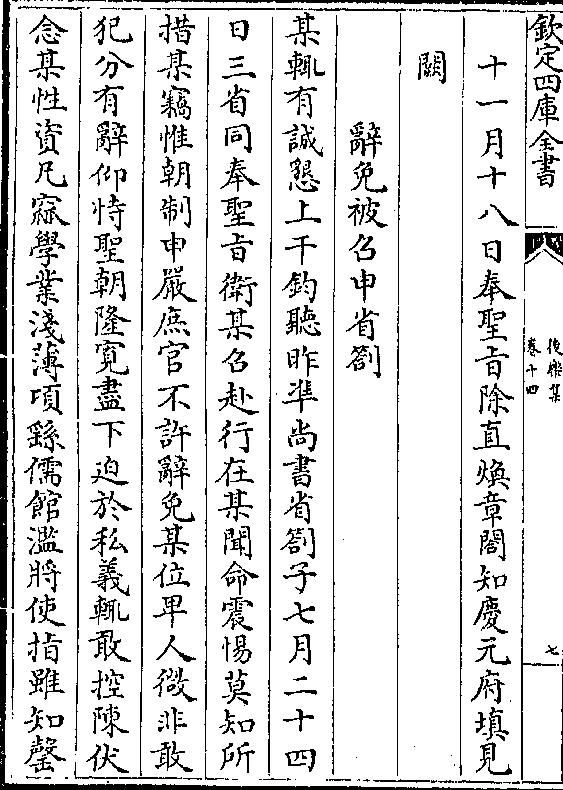 欽定四庫全書
後樂集
卷十四
七
十一月十八日奉聖旨除直煥章閣知慶元府填見
闕
辭免被召申省劄
某輒有誠懇上干鈞聽昨準尚書省劄子七月二十四
日三省同奉聖旨衛某召赴行在某聞命震惕莫知所
措某竊惟朝制申嚴庶官不許辭免某位卑人微非敢
犯分有辭仰恃聖朝隆寬盡下迫於私義輒敢控陳伏
念某性資凡窳學業淺薄項繇儒館濫將使指雖知罄